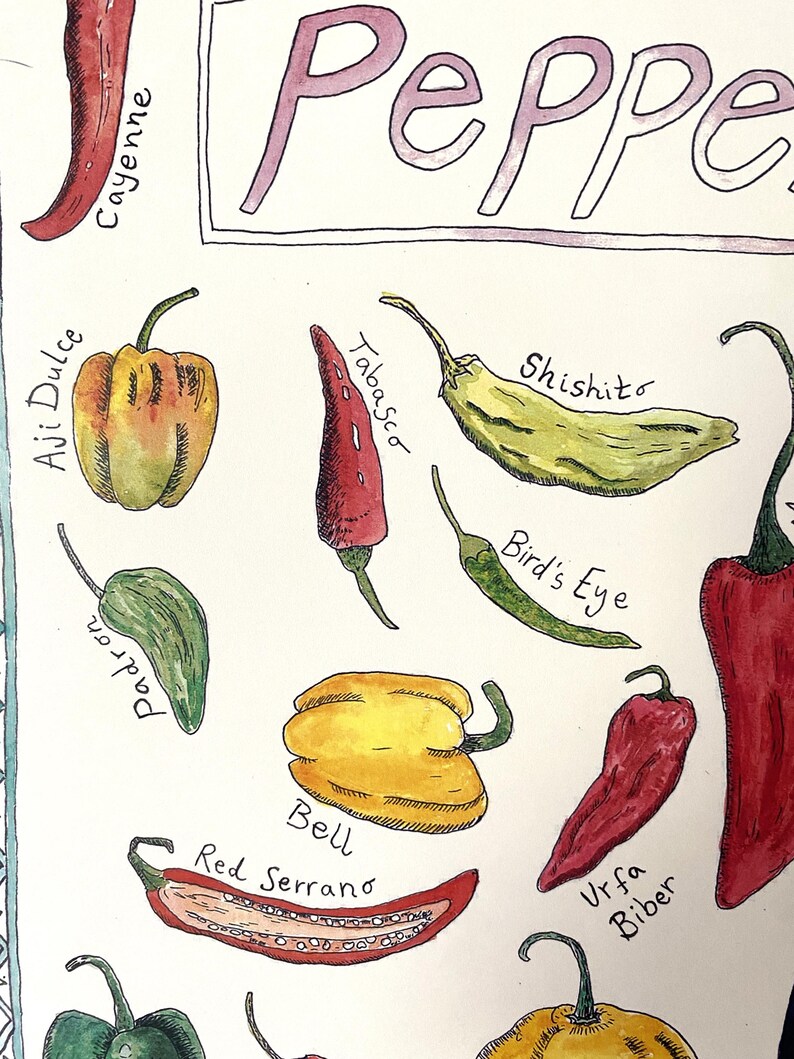 Peppe
Cayenne
Aji Dulce
Tabasco
Shishito
Bird's Eye
Padron
Bell
Urfa
Biber
Red Serrano